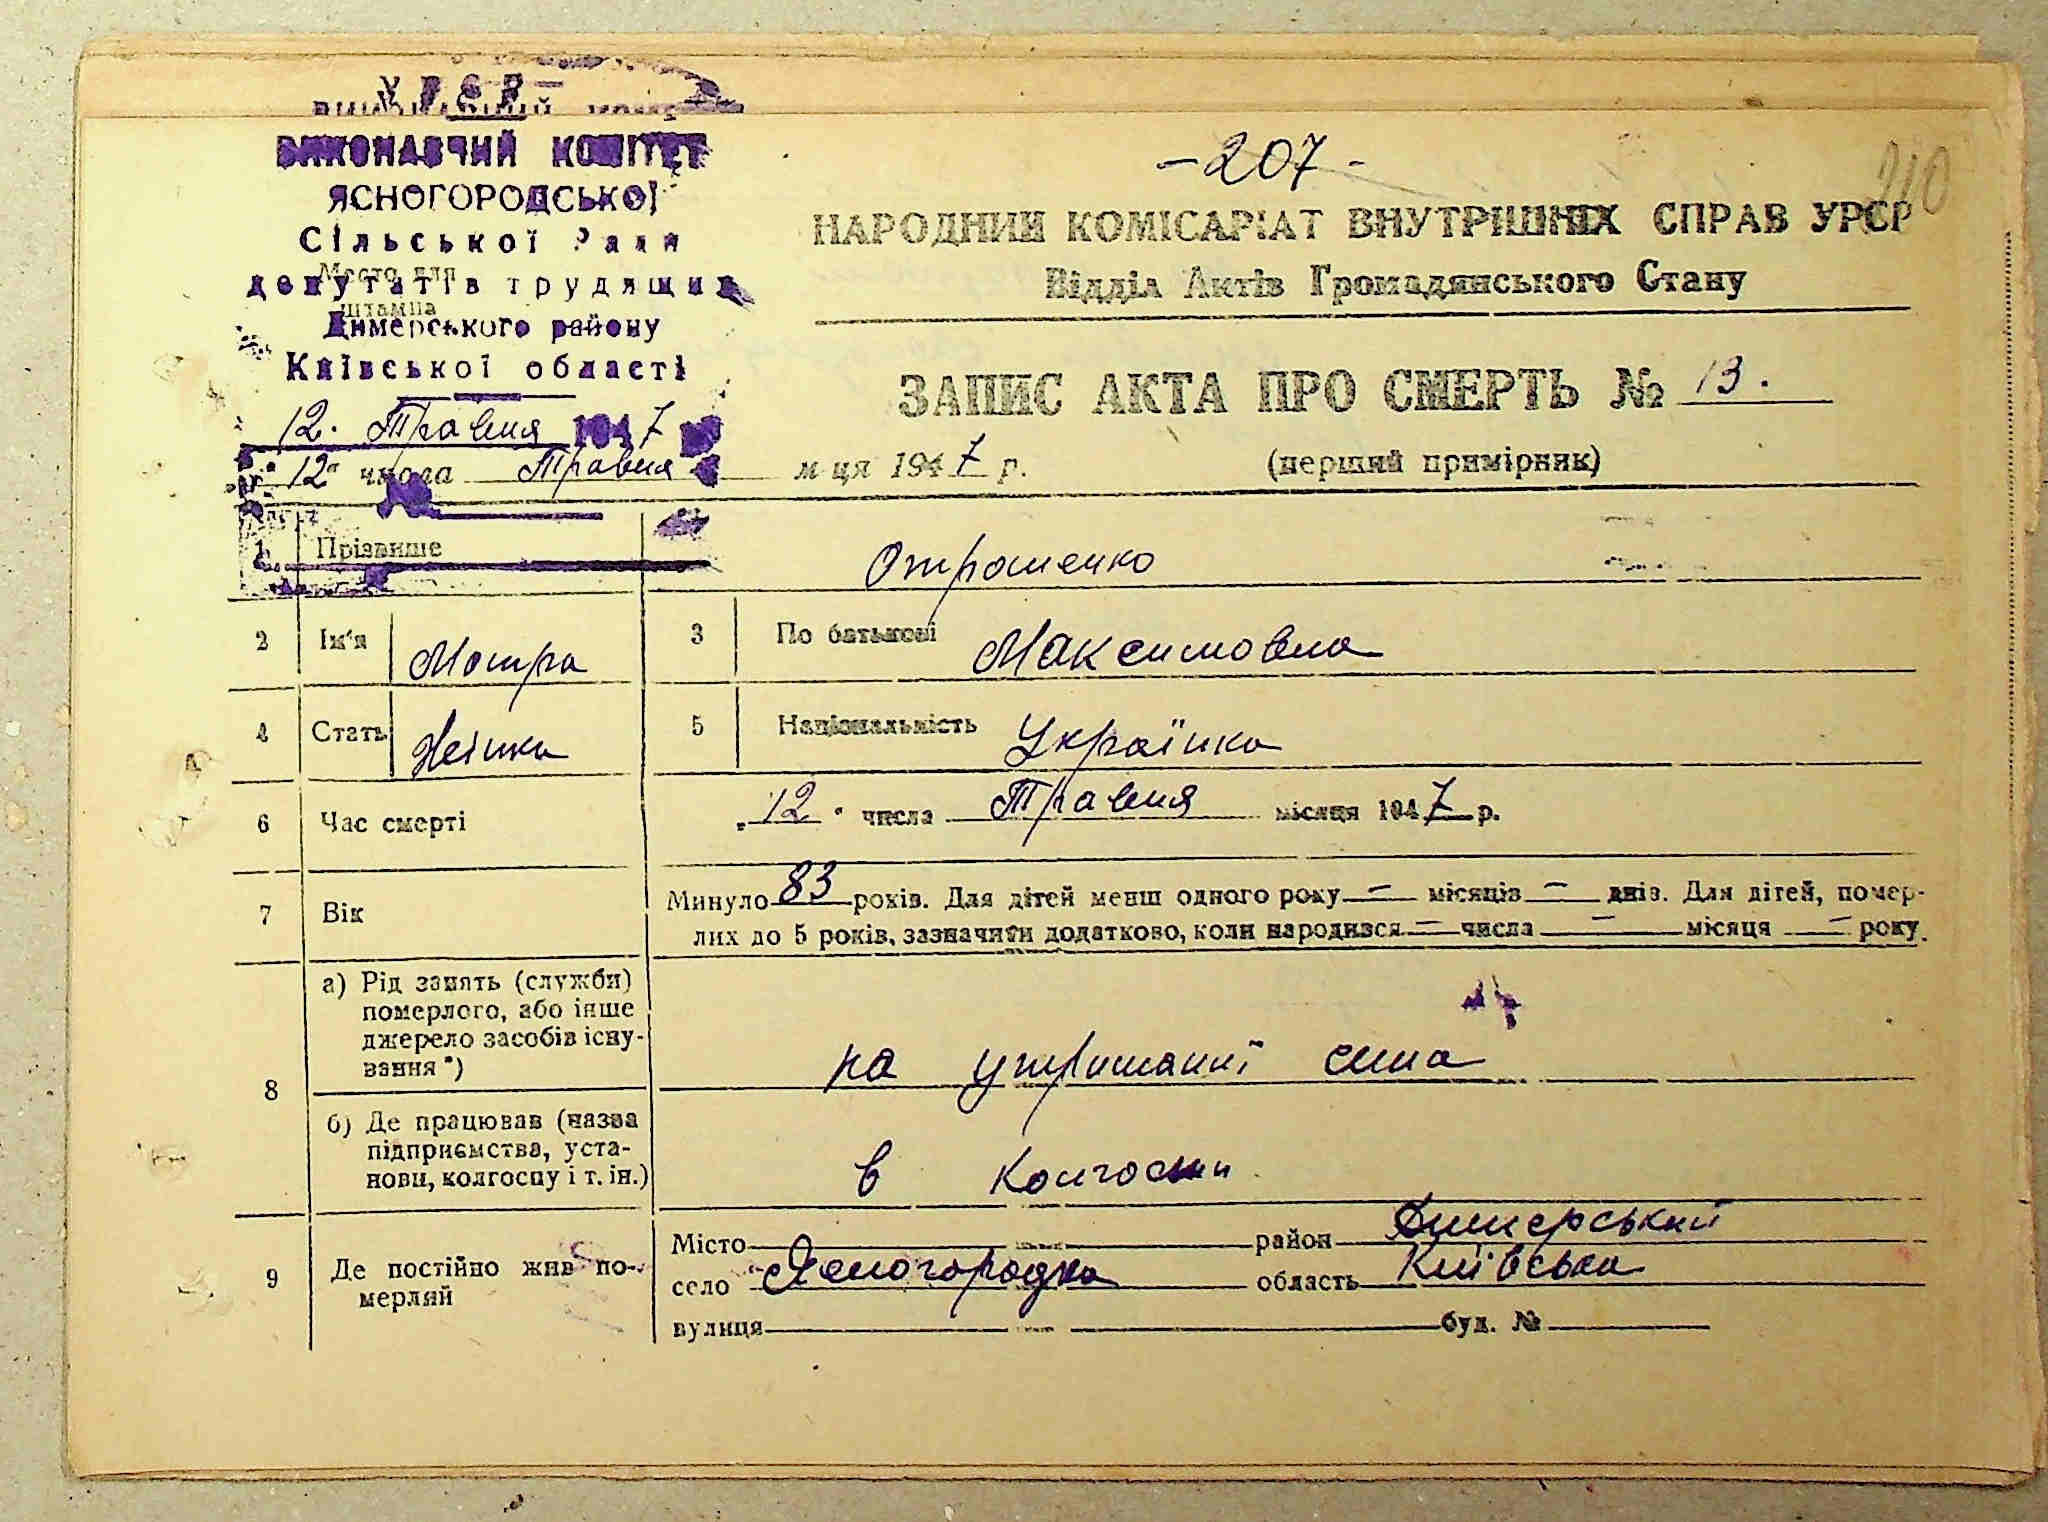 УРСР
ВИКОНАВЧИЙ КОМІТЕТ
ЯСНОГОРОДСЬКОЇ
Сільської Ради
депутатів трудящих
Димерського району
Київської області
Место для
штампа
12. Травня 1947
- 207 -
210
НАРОДНИЙ КОМІСАРІАТ ВНУТРІШНІХ СПРАВ УРСР
Відділ Актів Громадянського Стану
ЗАПИС АКТА ПРО СМЕРТЬ № 13.
(перший примірник)
"12" числа Травня м-ця 1947 р.
1 Прізвище Отрошенко
2 Ім'я Мотра 3 По батькові Максимовна
4 Стать Жінка 5 Національність Українка
6 Час смерті "12" числа Травня місяця 1947 р.
7 Вік Минуло 83 років. Для дітей менш одного року — місяців — днів. Для дітей, помер-
лих до 5 років, зазначити додатково, коли народився — числа — місяця — року.
8 а) Рід занять (служби)
померлого, або інше
джерело засобів існу-
вання *)
на утриманні сина
б) Де працював (назва
підприємства, уста-
нови, колгоспу і т. ін.)
в колгоспи
9 Де постійно жив по-
мерлий
Місто район Димерський
село Ясногородка область Київська
вулиця буд. №